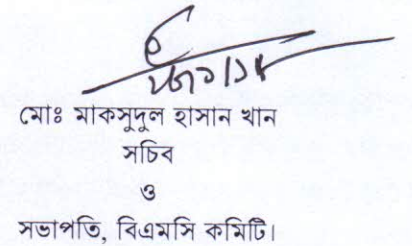 মোঃ মাকসুদুল হাসান খান
সচিব
ও
সভাপতি, বিএমসি কমিটি।